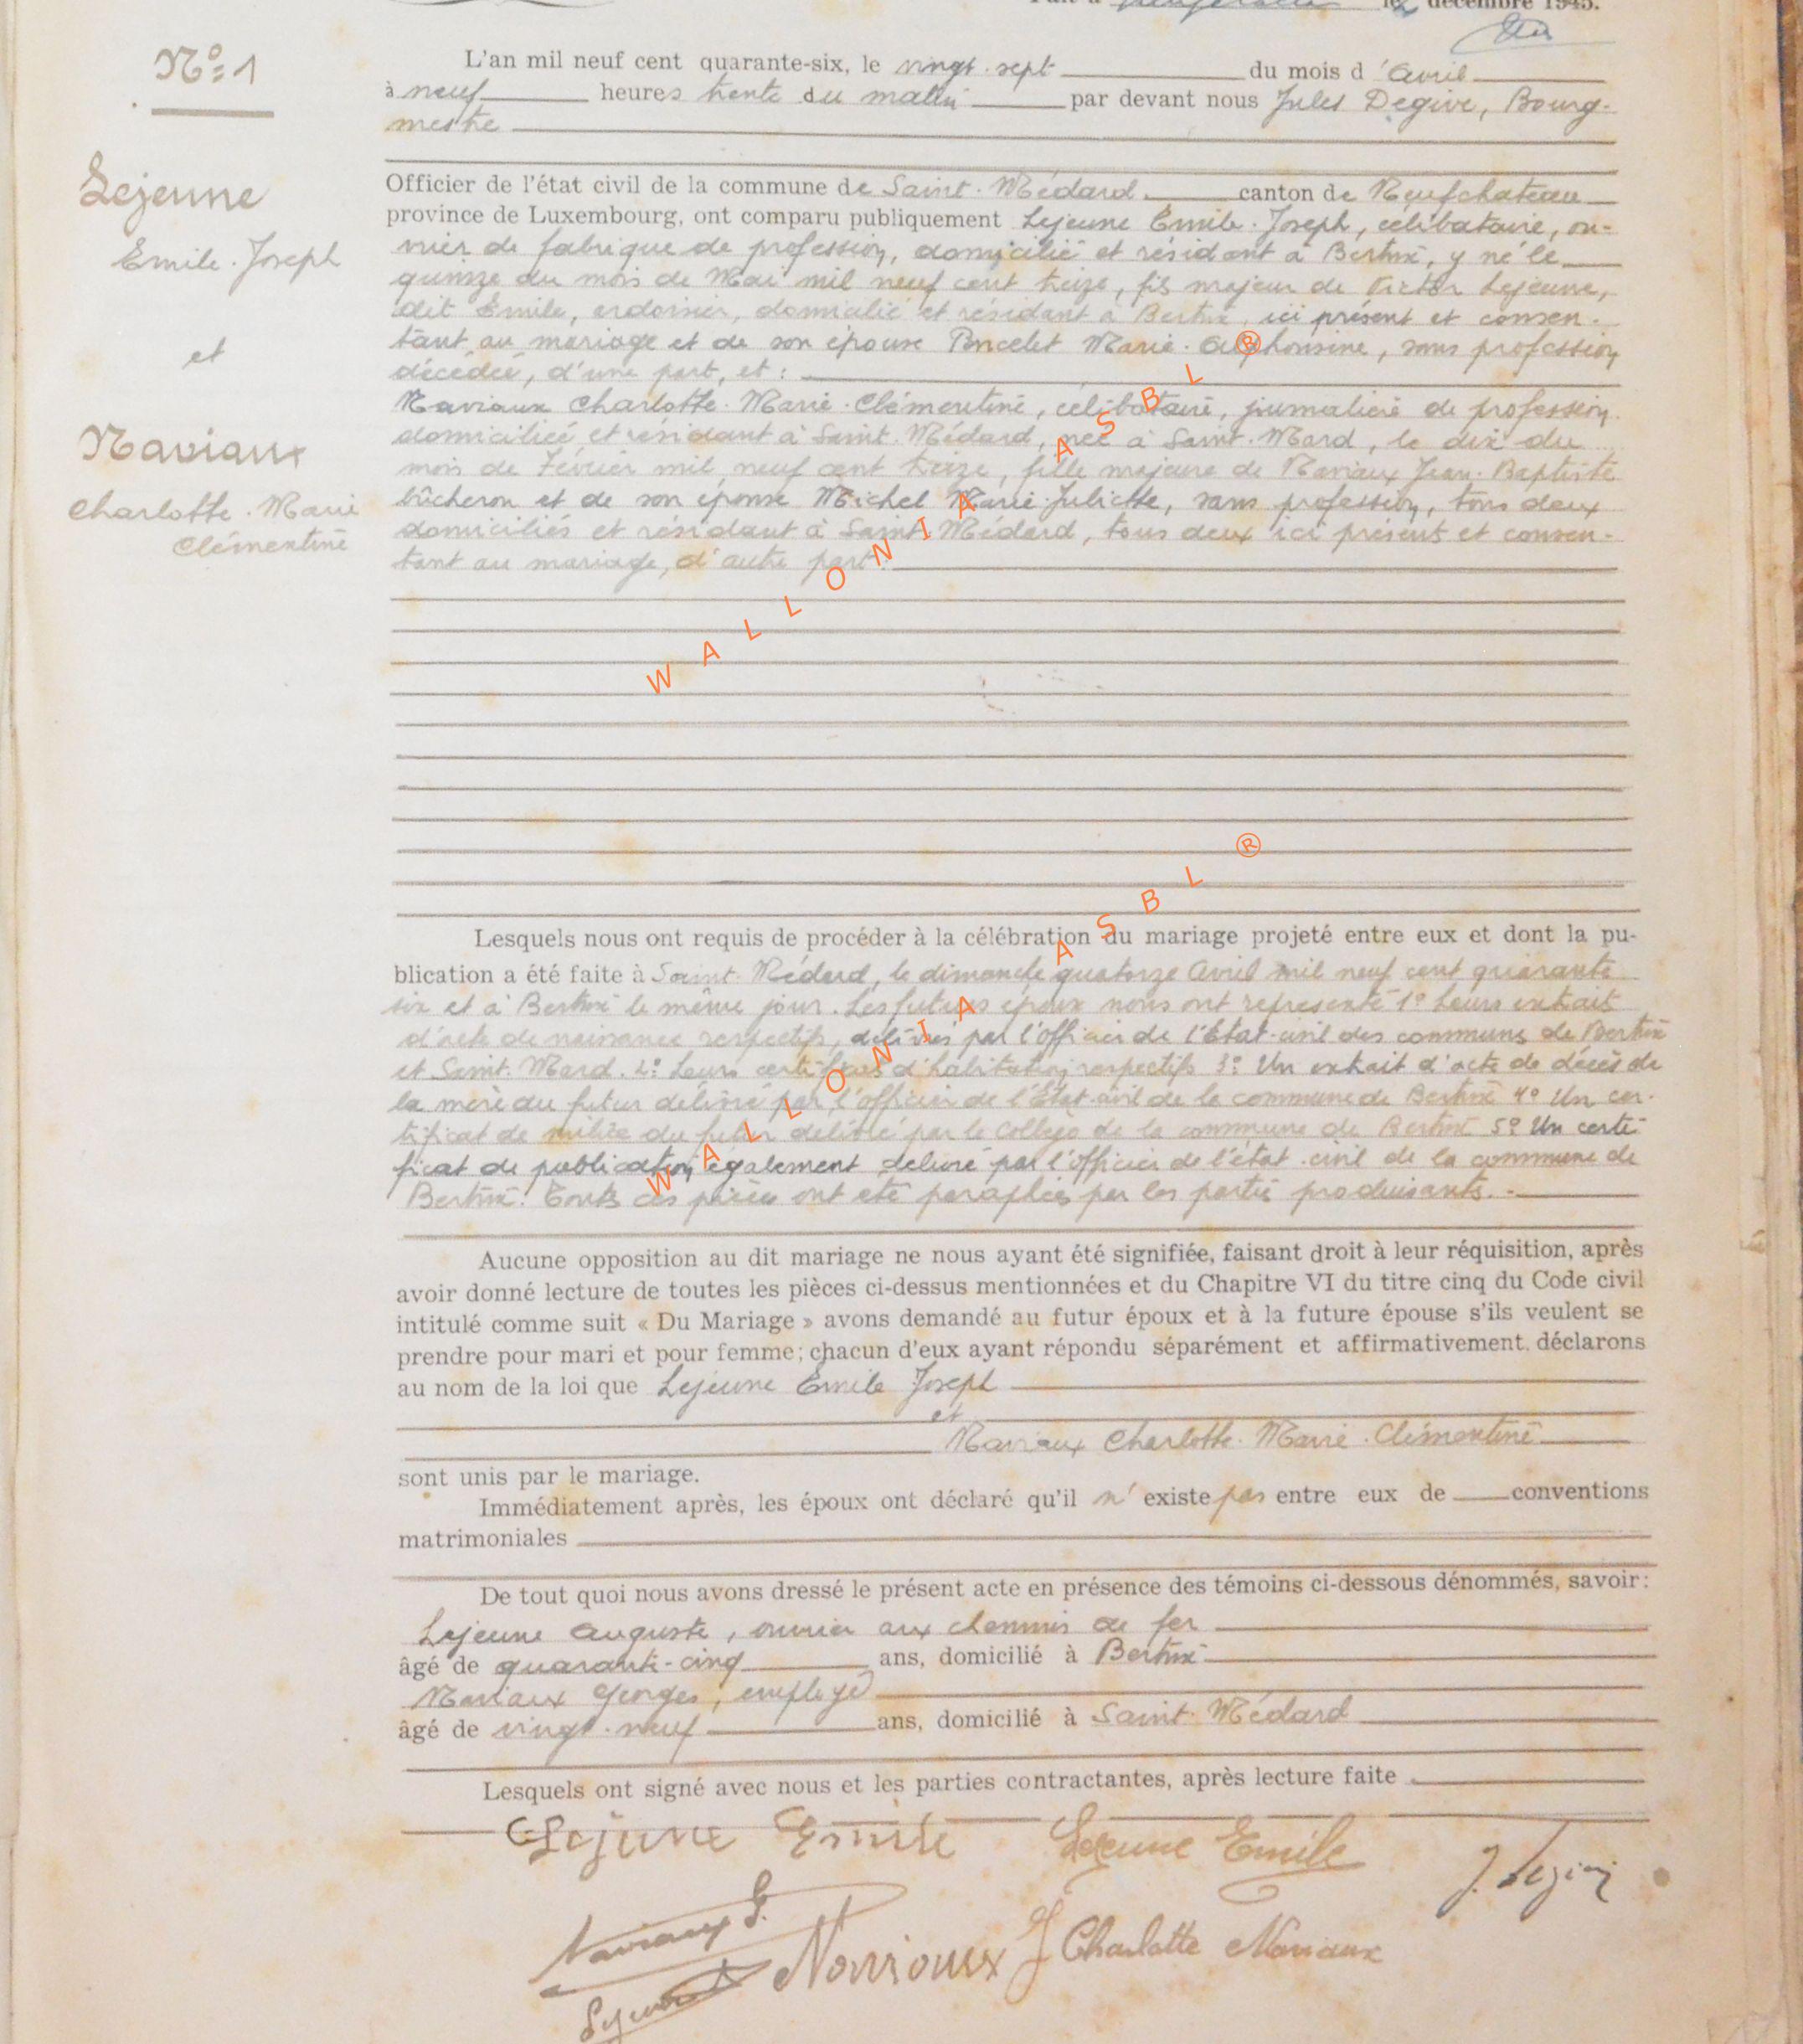 décembre 1945.
N° 1
L'an mil neuf cent quarante-six, le vingt-sept du mois d'Avril
à neuf heures trente du matin par devant nous Jules Degive, Bourg-
mestre
Officier de l'état civil de la commune de Saint-Médard canton de Neufchateau
province de Luxembourg, ont comparu publiquement Lejeune Emile-Joseph, célibataire, ou-
vrier de fabrique de profession, domicilié et résidant à Bertrix, y né le
quinze du mois de Mai mil neuf cent treize, fils majeur de Victor Lejeune,
dit Emile, ardoisier, domicilié et résidant à Bertrix, ici présent et consen-
tant au mariage et de son épouse Poncelet Marie-Alphonsine, sans profession,
décédée, d'une part, et :
Naviaux Charlotte-Marie-Clémentine, célibataire, journalière de profession
domiciliée et résidant à Saint-Médard, née à Saint-Mard, le dix du
mois de Février mil neuf cent treize, fille majeure de Naviaux Jean-Baptiste
bûcheron et de son épouse Michel Marie-Juliette, sans profession, tous deux
domiciliés et résidant à Saint-Médard, tous deux ici présents et consen-
tant au mariage, d'autre part.
Lejeune
Emile-Joseph
et
Naviaux
Charlotte-Marie
Clémentine
Lesquels nous ont requis de procéder à la célébration du mariage projeté entre eux et dont la pu-
blication a été faite à Saint-Médard, le dimanche quatorze Avril mil neuf cent quarante
six et à Bertrix le même jour. Les futurs époux nous ont représenté 1° Leurs extrait
d'acte de naissance respectifs, délivrés par l'officier de l'Etat-civil des communes de Bertrix
et Saint-Mard. 2° Leurs certificats d'habitation respectifs 3° Un extrait d'acte de décès de
la mère du futur délivré par l'officier de l'Etat-civil de la commune de Bertrix 4° Un cer-
tificat de milice du futur délivré par le Collège de la commune de Bertrix 5° Un certi-
ficat de publication également délivré par l'officier de l'état-civil de la commune de
Bertrix. Toutes ces pièces ont été paraphées par les parties produisants.
Aucune opposition au dit mariage ne nous ayant été signifiée, faisant droit à leur réquisition, après
avoir donné lecture de toutes les pièces ci-dessus mentionnées et du Chapitre VI du titre cinq du Code civil
intitulé comme suit « Du Mariage » avons demandé au futur époux et à la future épouse s'ils veulent se
prendre pour mari et pour femme; chacun d'eux ayant répondu séparément et affirmativement. déclarons
au nom de la loi que Lejeune Emile Joseph
et
Naviaux Charlotte-Marie-Clémentine
sont unis par le mariage.
Immédiatement après, les époux ont déclaré qu'il n'existe pas entre eux de conventions
matrimoniales
De tout quoi nous avons dressé le présent acte en présence des témoins ci-dessous dénommés, savoir:
Lejeune Auguste, ouvrier aux chemins de fer
âgé de quarante-cinq ans, domicilié à Bertrix
Naviaux Georges, employé
âgé de vingt-neuf ans, domicilié à Saint-Médard
Lesquels ont signé avec nous et les parties contractantes, après lecture faite
Lejeune Emile Lejeune Emile
J. Degive
Naviaux G.
Naviaux J Charlotte Naviaux
Lejeune A
WALLONIA ASBL ®
WALLONIA ASBL ®